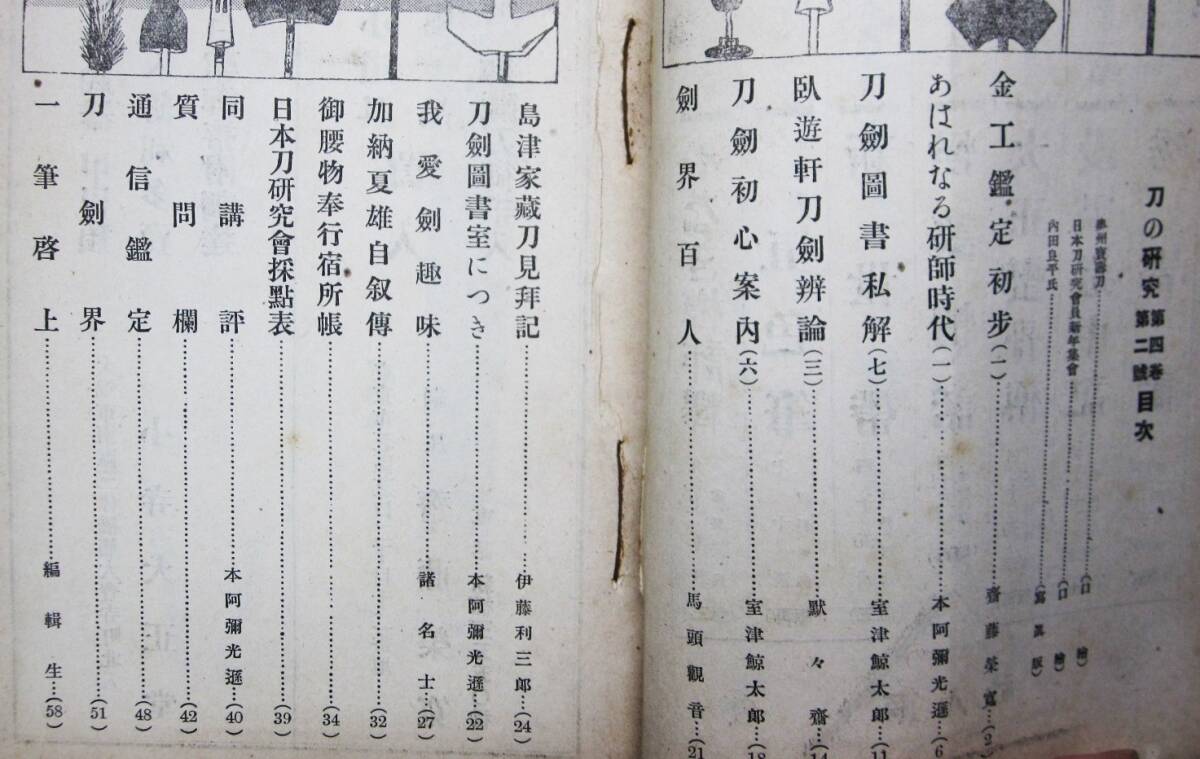 刀の研究 第四卷第二號 目次
日本刀研究會員新年集會……(口繪)
內田良平氏……(寫眞版)
金工鑑定初步(一)……齋藤榮寬…(2
あはれなる研師時代(一)……本阿彌光遜…(6
刀劍圖書私解(七)……室津鯨太郎…(11
臥遊軒刀劍辨論(三)……默々齋…(14
刀劍初心案內(六)……室津鯨太郎…(18
劍界百人……馬頭觀音…(21
島津家藏刀見拜記……伊藤利三郎…(24)
刀劍圖書室につき……本阿彌光遜…(22)
我愛劍趣味……諸名士…(27)
加納夏雄自叙傳……(32)
御腰物奉行宿所帳……(34)
日本刀研究會採點表……(39)
同講評……本阿彌光遜…(40)
質問欄……(42)
通信鑑定……(48)
刀劍界……(51)
一筆啓上……編輯生…(58)